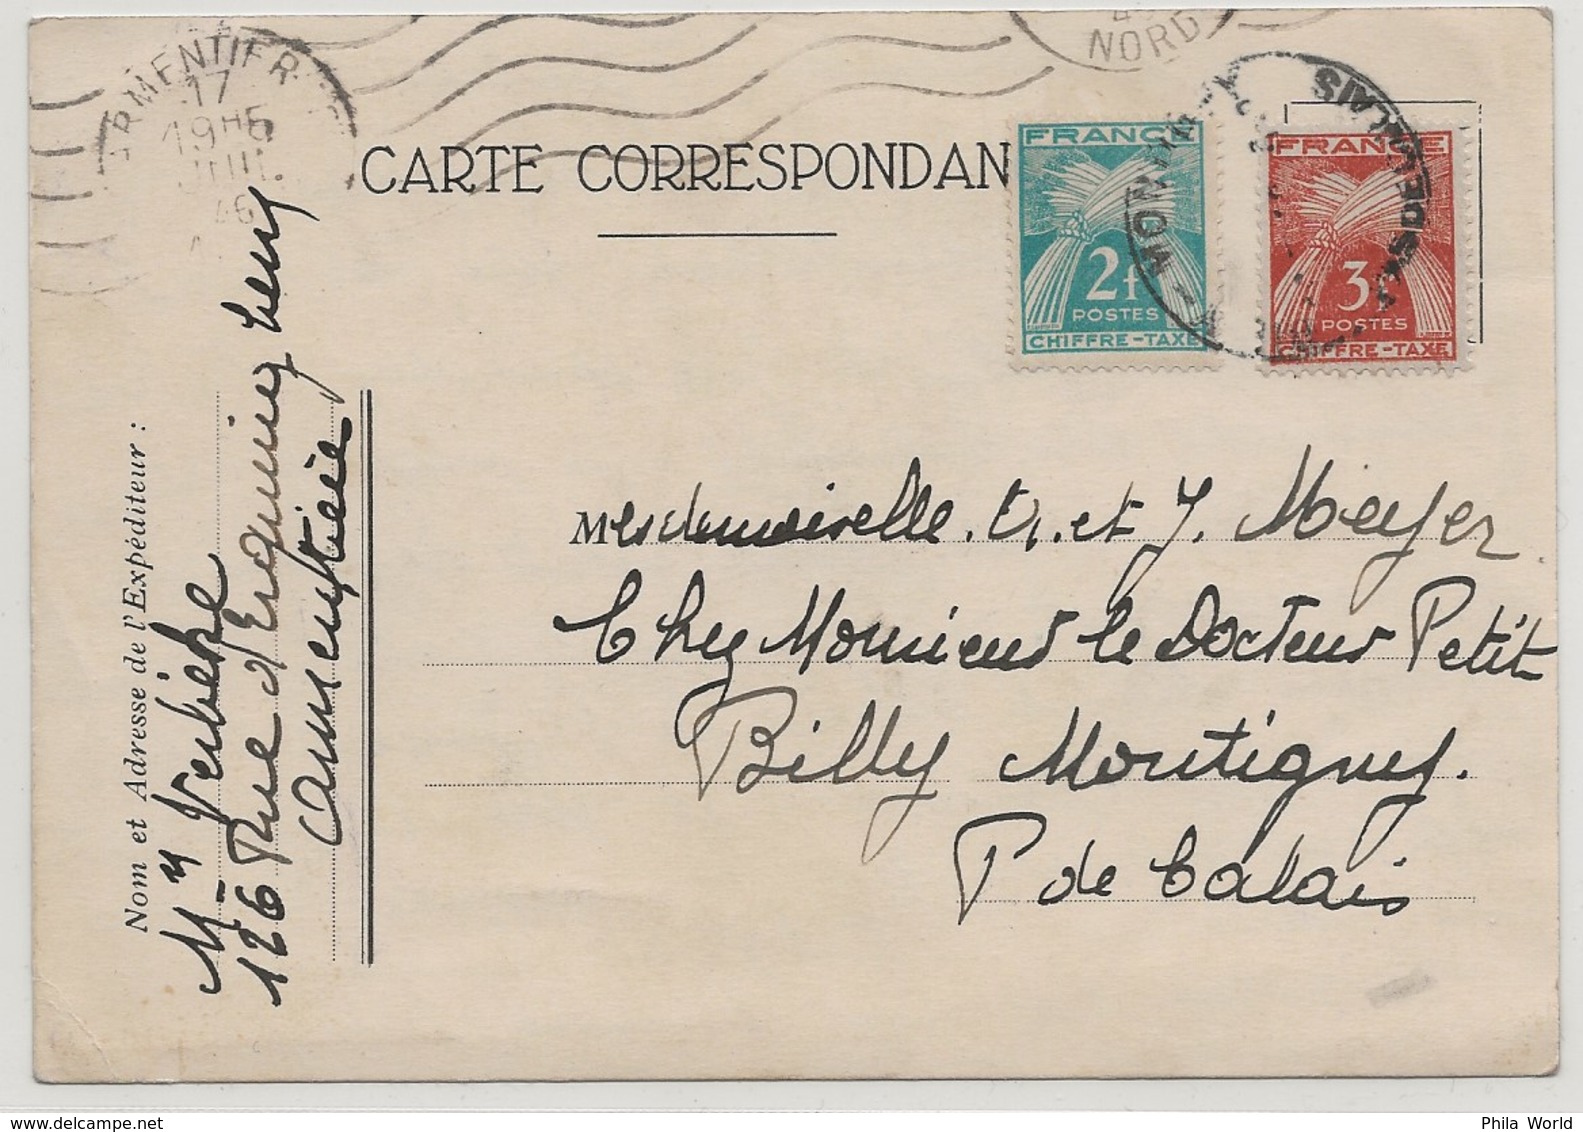 ARMENTIER
17
19 H
JUIL
46
NORD
CARTE CORRESPONDAN
FRANCE
2f
POSTES
CHIFFRE-TAXE
FRANCE
3f
POSTES
CHIFFRE-TAXE
Nom et Adresse de l'Expéditeur :
126 Rue d'Erquinghem
Mesdemoiselle. et J. Meyer
Chez Monsieur le Docteur Petit
Billy Montigny.
P de Calais
Phila World